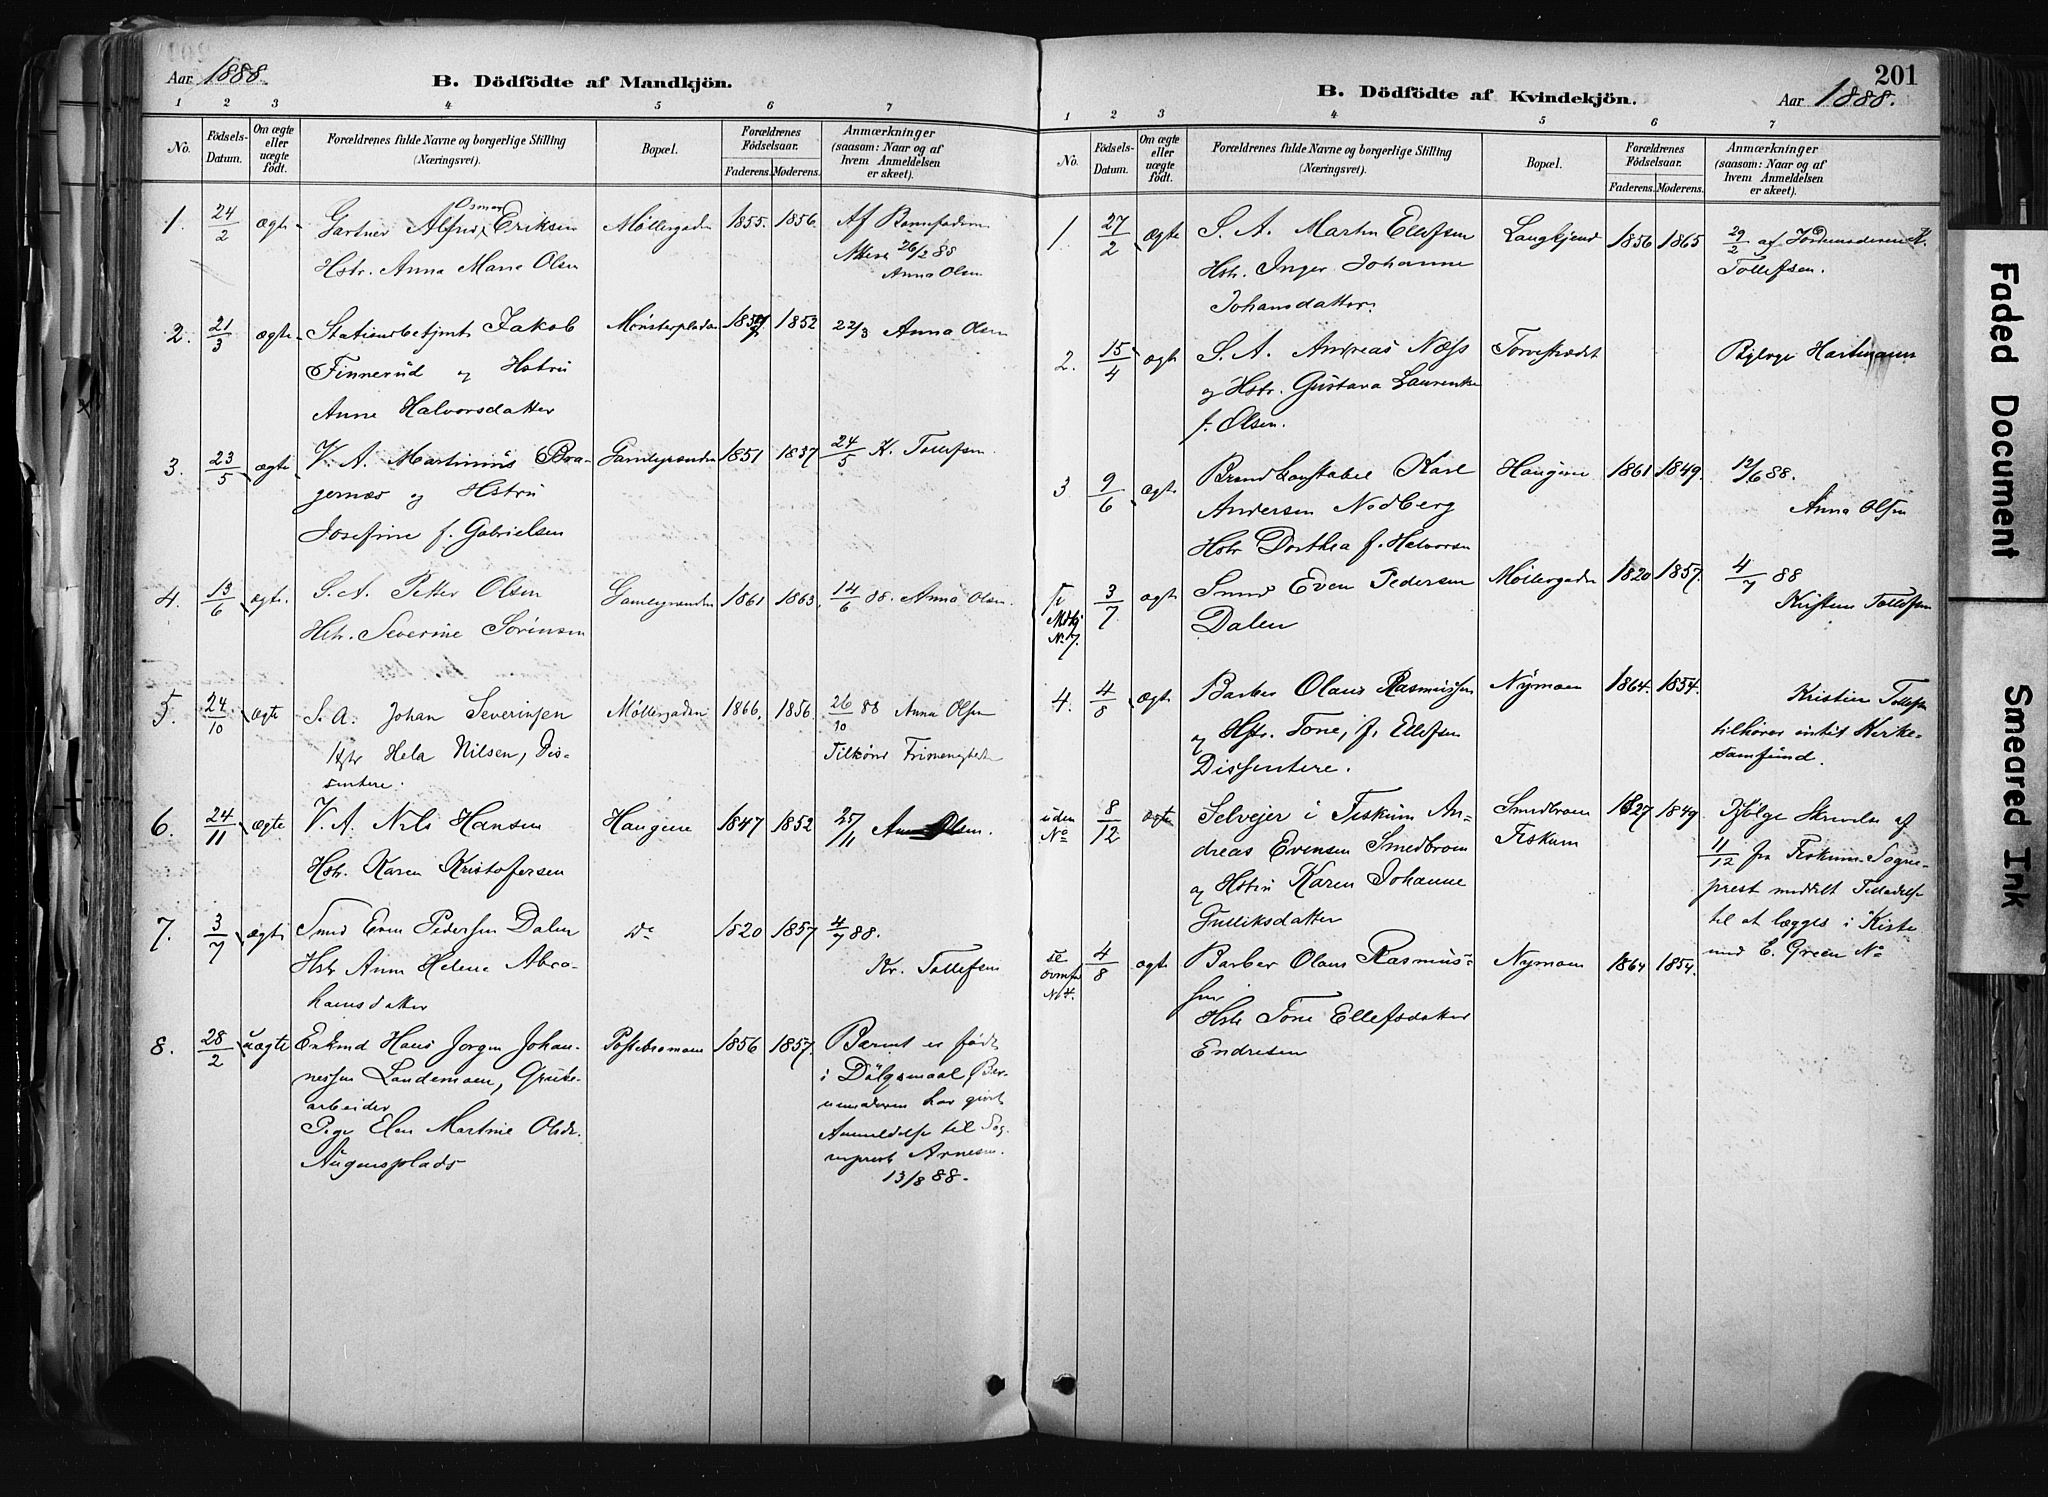 Aar 1888.
B. Dödfödte af Mandkjön.
1 2 3 4 5 6 7
No.
Födsels-Datum.
Om ægte eller uægte födt.
Forældrenes fulde Navne og borgerlige Stilling (Næringsvei).
Bopæl.
Forældrenes Födselsaar.
Faderens. Moderens.
Anmærkninger (saasom: Naar og af hvem Anmeldelsen er skeet).
1. 24/2 ægte Gartner Alfred Osmar Eriksen Møllergaden 1855. 1856. Af Barnefaderen
Hstr. Anna Marie Olsen 26/2 88
Anna Olsen
2. 21/3 ægte Stationsbetjent Jakob 1857 1852 22/3 Anna Olsen
Finnerud og Hstru
Anne Halvorsdatter
3. 23/5 ægte V. A. Martinius Bra- Gamlegrænden 1851 1857 24/5 K. Tollefsen.
gernæs og Hstru
Josefine f. Gabrielsen
4. 13/6 ægte. S. A. Petter Olsen Gamlegrænden 1861 1863. 14/6 88. Anna Olsen.
Hstr. Severine Sörensen
5. 24/10 ægte S. A. Johan Severinsen Møllergaden 1866. 1856. 26/10 88 Anna Olsen
Hstr Hela Nilsen, Dis-
sentere.
Frimenigheden
6. 24/11 ægte V. A. Nils Hansen Haugene 1847 1852 25/11 Anna Olsen.
Hstr. Karen Kristofersen
7. 3/7 ægte Smed Even Pedersen Dalen Do 1820 1857 4/7 88.
Hstr Anne Helene Abra- Kr. Tollefsen
hamsdatter
8. 28/2 uægte Enkmd Hans Jørgen Johan- 1856 1857. Barnet er født
nessen Landemoen, Grube- i Dølgsmaal, Bar-
arbeider nemoderen har gjort
Pige Elen Martine Olsdr. Anmeldelse til Sog-
neprest Arnesen.
13/8 88.
201
B. Dödfödte af Kvindekjön.
Aar 1888.
1 2 3 4 5 6 7
No.
Födsels-Datum.
Om ægte eller uægte födt.
Forældrenes fulde Navne og borgerlige Stilling (Næringsvei).
Bopæl.
Forældrenes Födselsaar.
Faderens. Moderens.
Anmærkninger (saasom: Naar og af hvem Anmeldelsen er skeet).
1. 27/2 ægte S. A. Martin Ellefsen Langkjend 1856 1865 29/2 af Jordemoderen K.
Hstr. Inger Johanne Tollefsen.
Johansdatter.
2. 15/4 ægte S. A. Andreas Næss Torvestrædet Hartmann
og Hstr. Gustava Laurentse
f. Olsen.
3 9/6 ægte Brandkonstabel Karl Haugene 1861 1849. 12/6 88.
Andersen Nodberg Anna Olsen
Hstr Dorthea f. Halvorsen
Mdkj No 7. 3/7 ægte Smed Even Pedersen Møllergaden 1820 1857. 4/7 88
Dalen Kristine Tollefsen
4. 4/8 ægte Barber Olaus Rasmussen Nymoen 1864. 1854. Kristine Tollefsen
og Hstr. Tone, f. Ellefsen tilhører intet Kirke-
Dissentere. samfund.
uden No 8/12 ægte Selveier i Fiskum An- Smedbroen 1827 1849 Ifølge Skrivelse af
dreas Evensen Smedbroen Fiskum 11/12 fra Fiskum Sogne-
og Hstru Karen Johanne prest meddelt Tilladelse
Gulliksdatter til at lægges i Kiste
med E. Green No
se ovenfor No 4. 4/8 ægte Barber Olaus Rasmus- Nymoen 1864 1854.
sen
Hstr Tone Ellefsdatter
Endresen
Faded Document
Smeared Ink